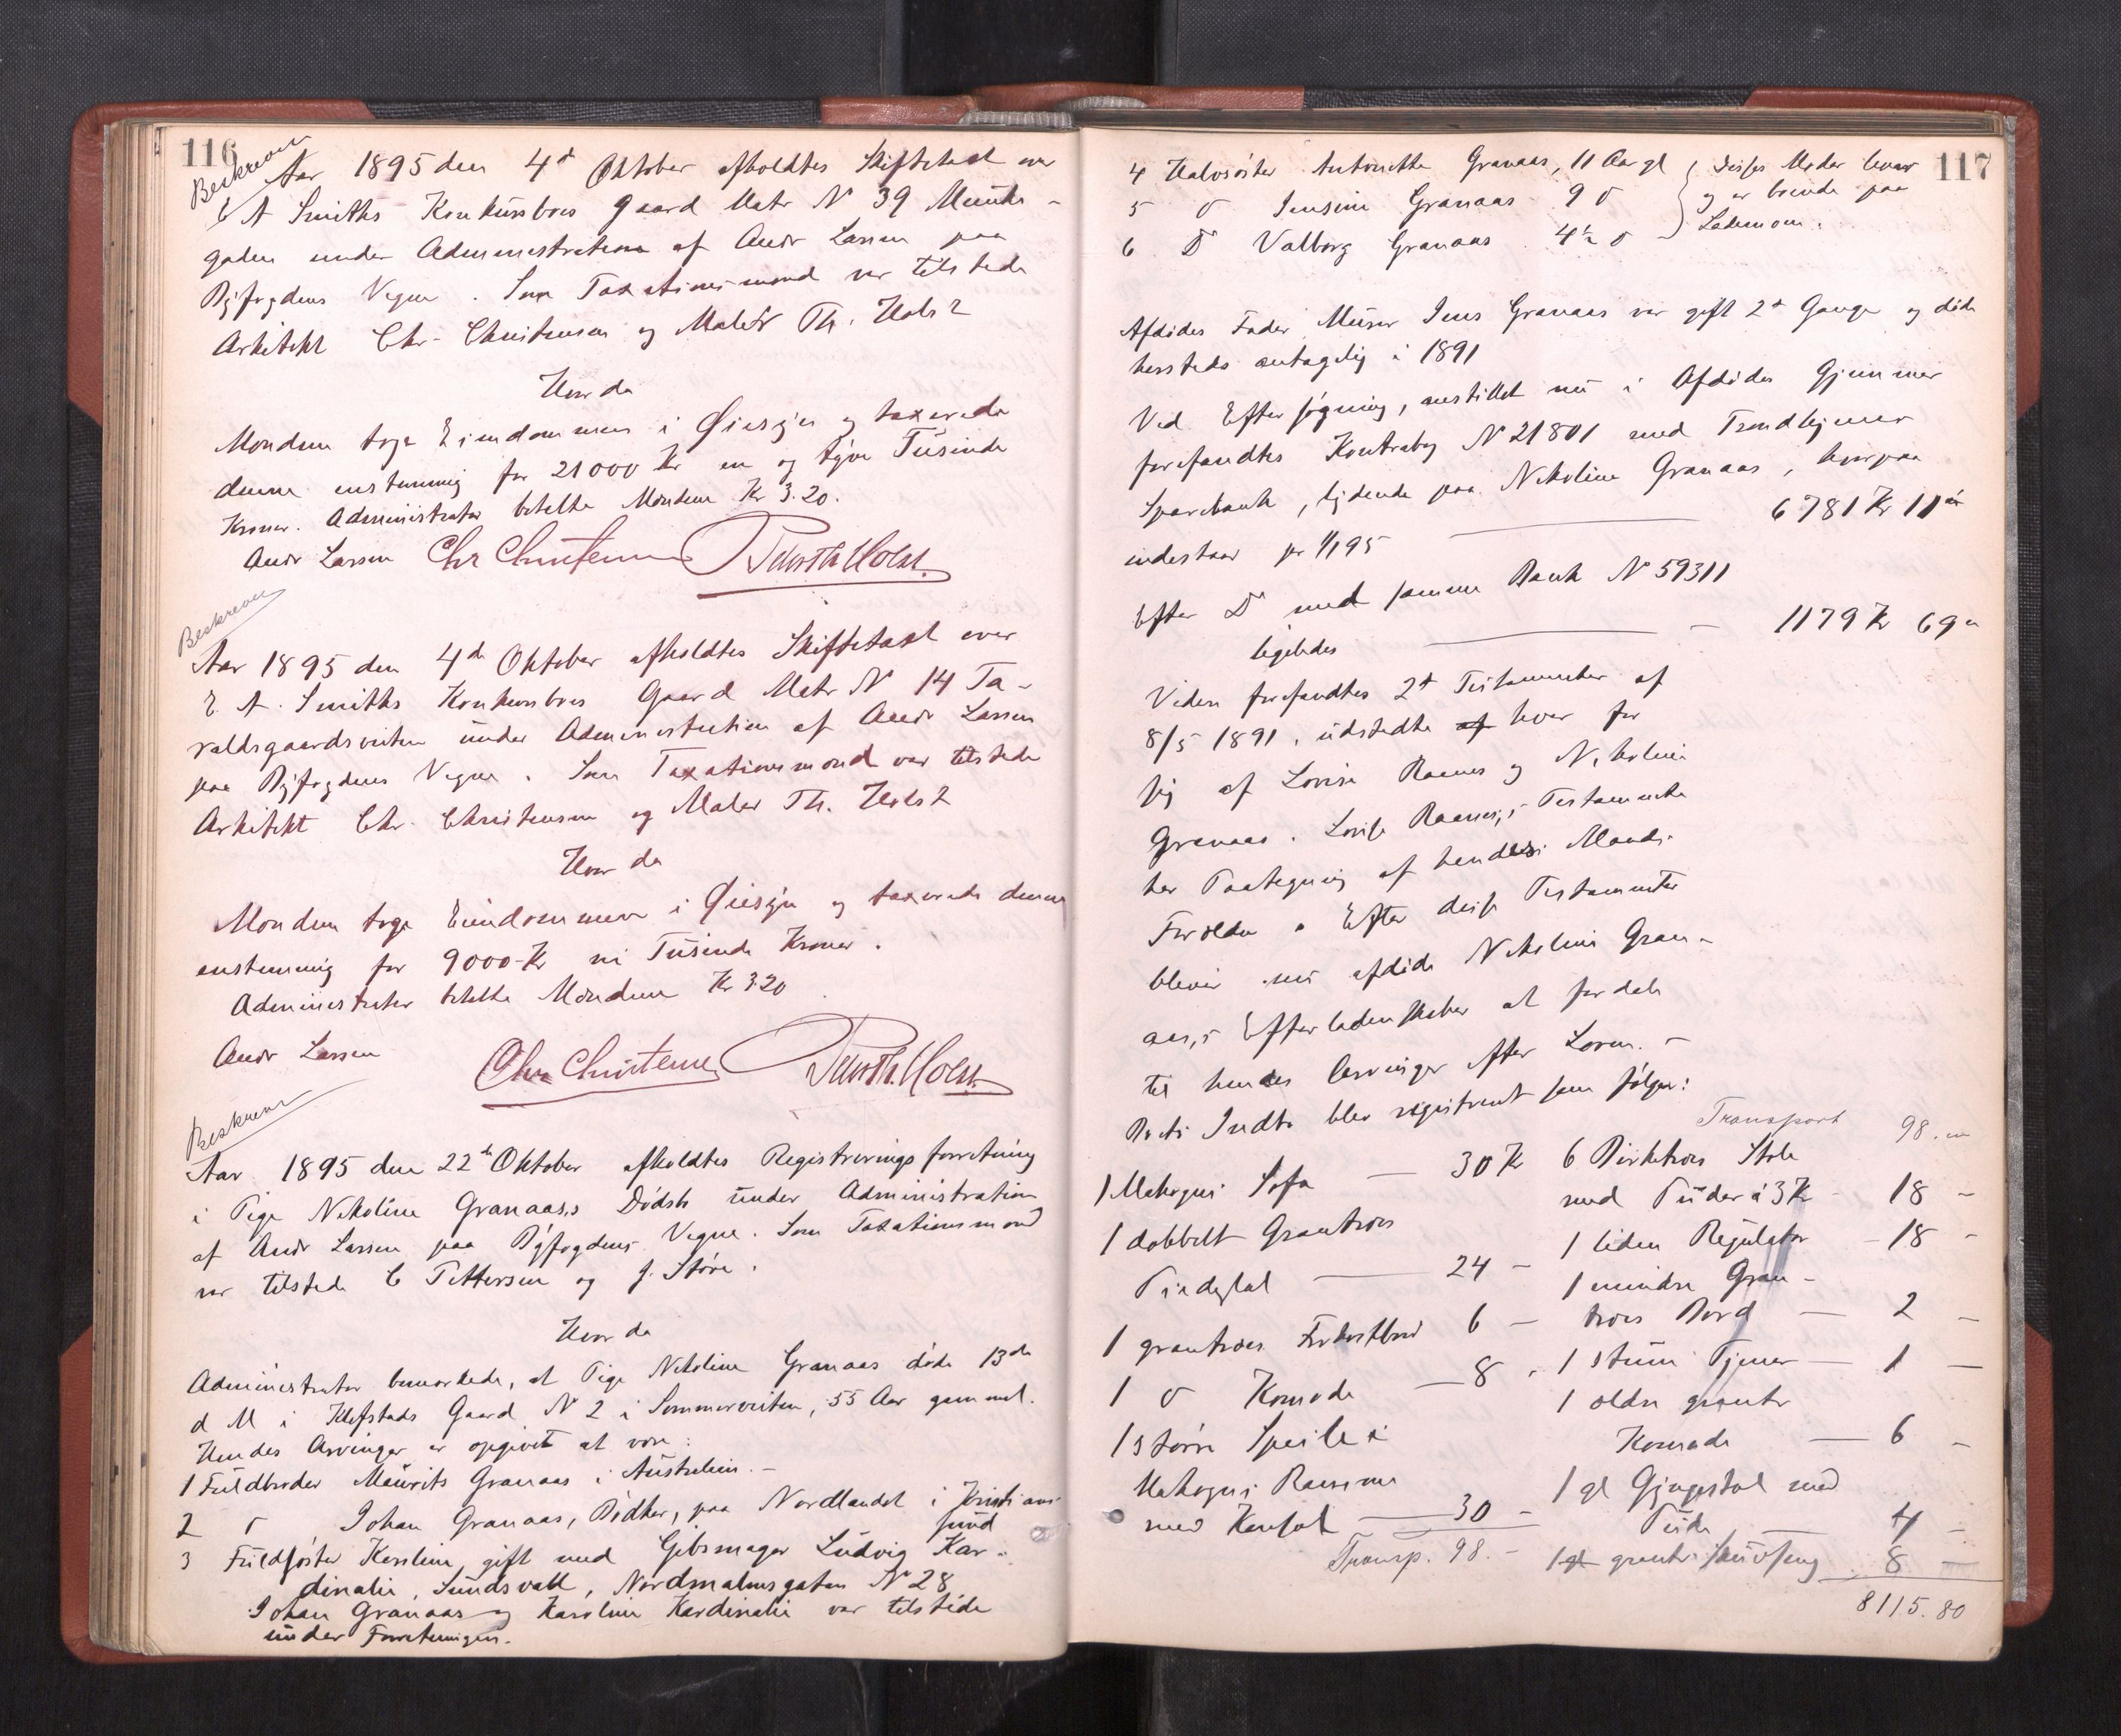 116
Beskreven
Aar 1895 den 4de Oktober afholdtes Skiftetaxt over
E A Smiths Konkursboes Gaard Matr N 39 Munke-
gaden under Administration af Andr Larsen paa
Byfogdens Vegne. Som Taxationsmænd var tilstede
Arkitekt Chr. Christensen og Maler Th. Holst
Hvor da
Mændene toge Eiendommen i Øiesyn og taxerede
denne enstemmig for 21000 Kr en og tyve Tusinde
Kroner. Administrator betalte Mændene Kr 3.20.
Andr Larsen Chr Christensen Th Holst.
Beskreven
Aar 1895 den 4de Oktober afholdtes Skiftetaxt over
E. A. Smiths Konkursboes Gaard Matr N 14 Ta-
raldsgaardsveiten under Administration af Andr Larsen
paa Byfogdens Vegne. Som Taxationsmænd var tilstede
Arkitekt Chr. Christensen og Maler Th. Holst
Hvor da
Mændene toge Eiendommen i Øiesyn og taxerede denne
enstemmig for 9000 Kr ni Tusinde Kroner.
Administrator betalte Mændene Kr 3 20
Andr Larsen Chr Christensen Th. Holst.
Beskreven
Aar 1895 den 22de Oktober afholdtes Registreringsforretning
i Pige Nikoline Granaas,s Dødsb under Administration
af Andr Larsen paa Byfogdens Vegne. Som Taxationsmænd
var tilstede C Pettersen og J. Støre.
Hvor da
Administrator bemærkede, at Pige Nikoline Granaas døde 13de
d M i Klefstads Gaard N 2 i Sommerveiten, 55 Aar gammel.
Hendes Arvinger er opgivet at være:
1 Fuldbroder Maurits Granaas i Australien.-
2 D Johan Granaas, Bødker, paa Nordlandet i Kristian-
sund
3 Fuldsøster Karoline, gift med Gibsmager Ludvig Kar-
dinalie, Sundsvall, Nordmalmsgatan N 28
Johan Granaas og Karoline Kardinalie var tilstede
under Forretningen.
117
4 Halvsøster Antonette Granaas, 11 Aar gl
5 D Jensine Granaas 9 D
6 D Valborg Granaas 4½ D
Disses Moder lever
og er boende paa
Lademoen.
Afdødes Fader Murer Jens Granaas var gift 2de Gange og døde
hersteds antagelig i 1891
Ved Eftersøgning, anstillet nu i Afdødes Gjemmer
forefandtes Kontrabog N 21801 med Trondhjems
Sparebank, lydende paa Nikoline Granaas, hvorpaa
indestaar pr 1/1 95 6781 Kr 11 ør
Efter D med samme Bank N 59311
ligeledes 1179 Kr 69 ø
Videre forefandtes 2de Testamenter af
8/5 1891, udstedte af hver for
sig af Lovise Raanes og Nikoline
Granaas. Lovise Raanes,s Testamente
har Paategning af hendes Mands
Forældre. Efter disse Testamenter
bliver nu afdøde Nikoline Gran-
aas,s Efterladenskaber at fordele
til hendes Arvinger efter Loven.-
Boets Indbo blev registreret som følger:
1 Mahogni Sofa 30 Kr
1 dobbelt Grantræes
Pindestol 24 -
1 grantræes Frokostbord 6 -
1 D Komode 8 -
1 større Speile i
Mahogni Ramme
med Konsol 30 -
Transp. 98. -
Transport 98.
6 Birketræes Stole
med Puder á 3 Kr 18 -
1 liden Regulator 18 -
1 mindre Gran-
træes Bord 2 -
1 stum Tjener 1 -
1 ældre grantr
Komode 6 -
1 gl Gyngestol med
Pude 4 -
1 gl grantr Skuvseng 8
8115.80